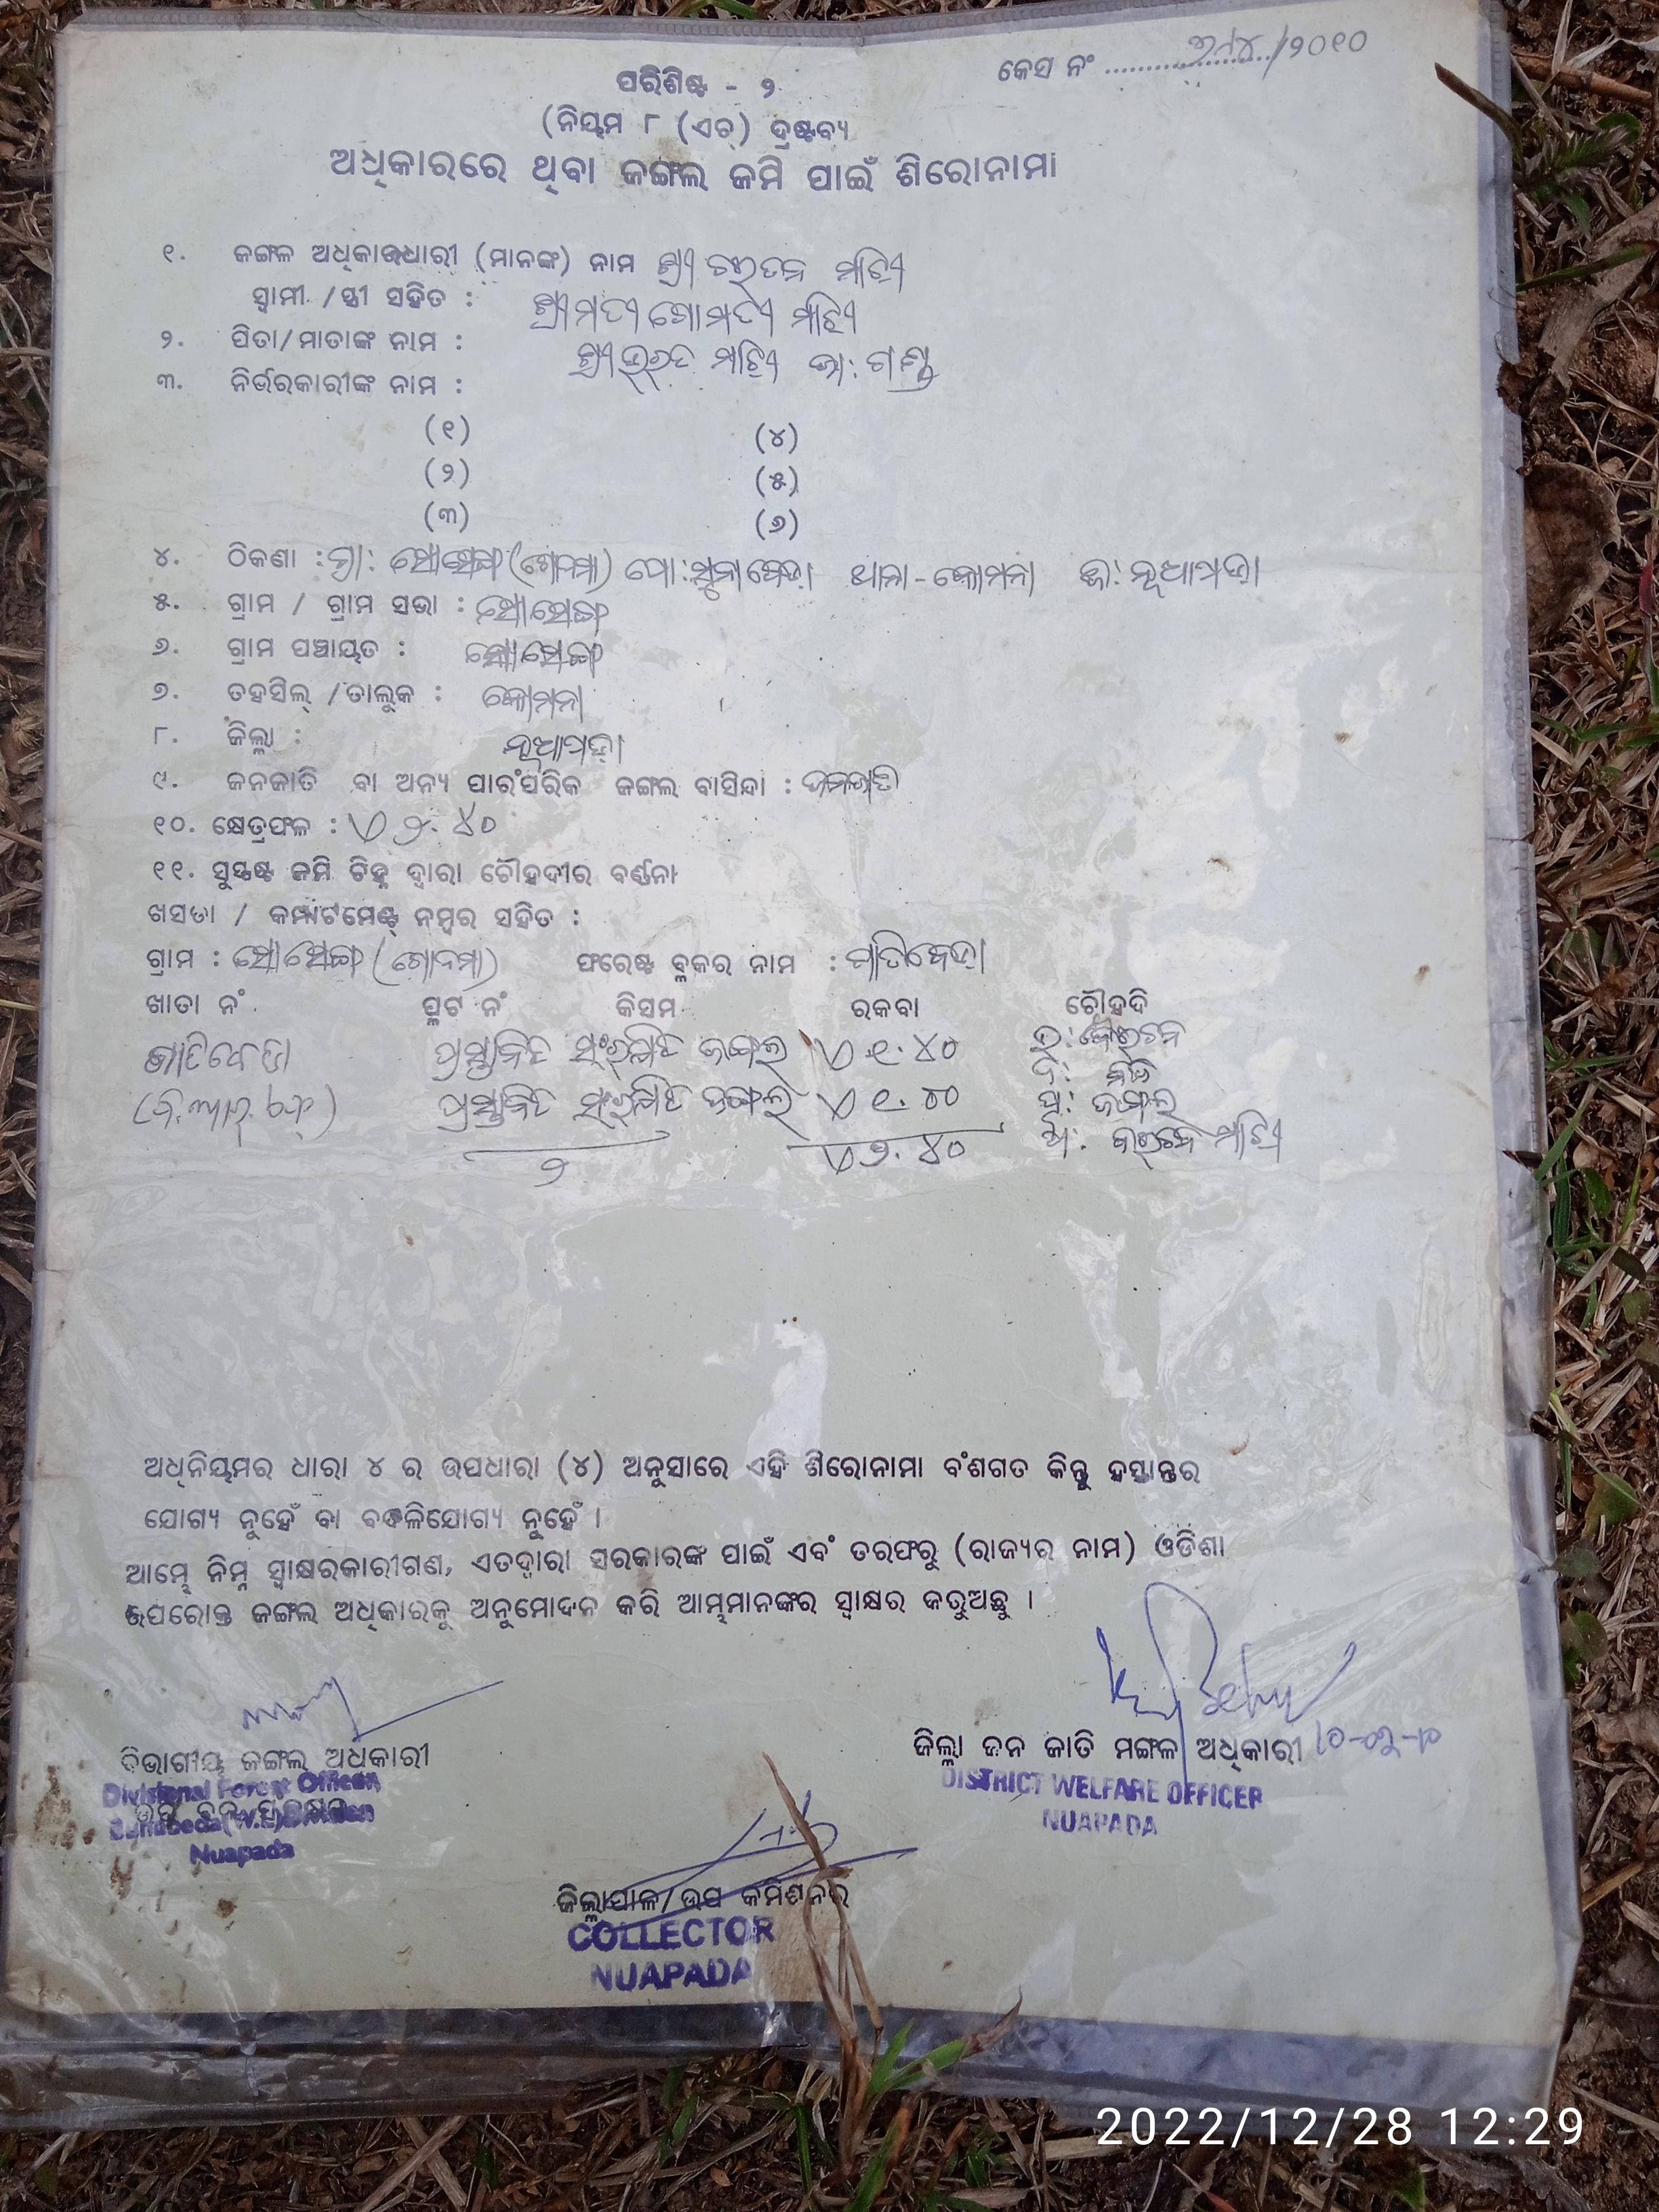 କେସ ନଂ ...................../୨୦୧୦
ପରିଶିଷ୍ଟ - ୨
(ନିୟମ ୮ (ଏଚ୍) ଦ୍ରଷ୍ଟବ୍ୟ
ଅଧିକାରରେ ଥିବା ଜଙ୍ଗଲ ଜମି ପାଇଁ ଶିରୋନାମା
୧. ଜଙ୍ଗଲ ଅଧିକାରଧାରୀ (ମାନଙ୍କ) ନାମ ଶ୍ରୀ ମାଝି
ସ୍ୱାମୀ /ସ୍ତ୍ରୀ ସହିତ : ଶ୍ରୀମତୀ ଗୋମତୀ ମାଝି
୨. ପିତା/ମାତାଙ୍କ ନାମ : ଶ୍ରୀ ମାଝି ଜା: ଗଣ୍ଡ
୩. ନିର୍ଭରକାରୀଙ୍କ ନାମ :
(୧) (୪)
(୨) (୫)
(୩) (୬)
୪. ଠିକଣା : ଗ୍ରା: ପୋ: ସୁନାବେଡା ଥାନା - କୋମନା ଜି: ନୂଆପଡା
୫. ଗ୍ରାମ / ଗ୍ରାମ ସଭା :
୬. ଗ୍ରାମ ପଞ୍ଚାୟତ :
୭. ତହସିଲ୍ /ତାଲୁକ : କୋମନା
୮. ଜିଲ୍ଲା : ନୂଆପଡା
୯. ଜନଜାତି ବା ଅନ୍ୟ ପାରଂପରିକ ଜଙ୍ଗଲ ବାସିନ୍ଦା : ଜନଜାତି
୧୦. କ୍ଷେତ୍ରଫଳ : ୨.୪୦
୧୧. ସୁସ୍ପଷ୍ଟ ଜମି ଚିହ୍ନ ଦ୍ୱାରା ଚୌହଦୀର ବର୍ଣ୍ଣନା
ଖସଡା / କମ୍ପାର୍ଟମେଣ୍ଟ୍ ନମ୍ବର ସହିତ :
ଗ୍ରାମ : ଫରେଷ୍ଟ ବ୍ଲକର ନାମ : ପାତିବେଡା
ଖାତା ନଂ ପ୍ଲଟ ନଂ କିସମ ରକବା ଚୌହଦି
ପ୍ରସ୍ତାବିତ ସଂରକ୍ଷିତ ଜଙ୍ଗଲ ୧.୪୦ ଉ:
ଦ:
ପ୍ରସ୍ତାବିତ ସଂରକ୍ଷିତ ଜଙ୍ଗଲ ୧.୦୦ ପୂ: ଜଙ୍ଗଲ
୨ ୨.୪୦ ପ: ମାଝି
ଅଧିନିୟମର ଧାରା ୪ ର ଉପଧାରା (୪) ଅନୁସାରେ ଏହି ଶିରୋନାମା ବଂଶଗତ କିନ୍ତୁ ହସ୍ତାନ୍ତର
ଯୋଗ୍ୟ ନୁହେଁ ବା ବଦଳିଯୋଗ୍ୟ ନୁହେଁ ।
ଆମ୍ଭେ ନିମ୍ନ ସ୍ୱାକ୍ଷରକାରୀଗଣ, ଏତଦ୍ୱାରା ସରକାରଙ୍କ ପାଇଁ ଏବଂ ତରଫରୁ (ରାଜ୍ୟର ନାମ) ଓଡିଶା
ଉପରୋକ୍ତ ଜଙ୍ଗଲ ଅଧିକାରକୁ ଅନୁମୋଦନ କରି ଆମ୍ଭମାନଙ୍କର ସ୍ୱାକ୍ଷର କରୁଅଛୁ ।
ବିଭାଗୀୟ ଜଙ୍ଗଲ ଅଧିକାରୀ
Divisional Forest Officer
Sunabeda (W.L) Division
Nuapada
ଜିଲ୍ଲା ଜନ ଜାତି ମଙ୍ଗଳ ଅଧିକାରୀ
DISTRICT WELFARE OFFICER
NUAPADA
ଜିଲ୍ଲାପାଳ/ଉପ କମିଶନର
COLLECTOR
NUAPADA
2022/12/28 12:29